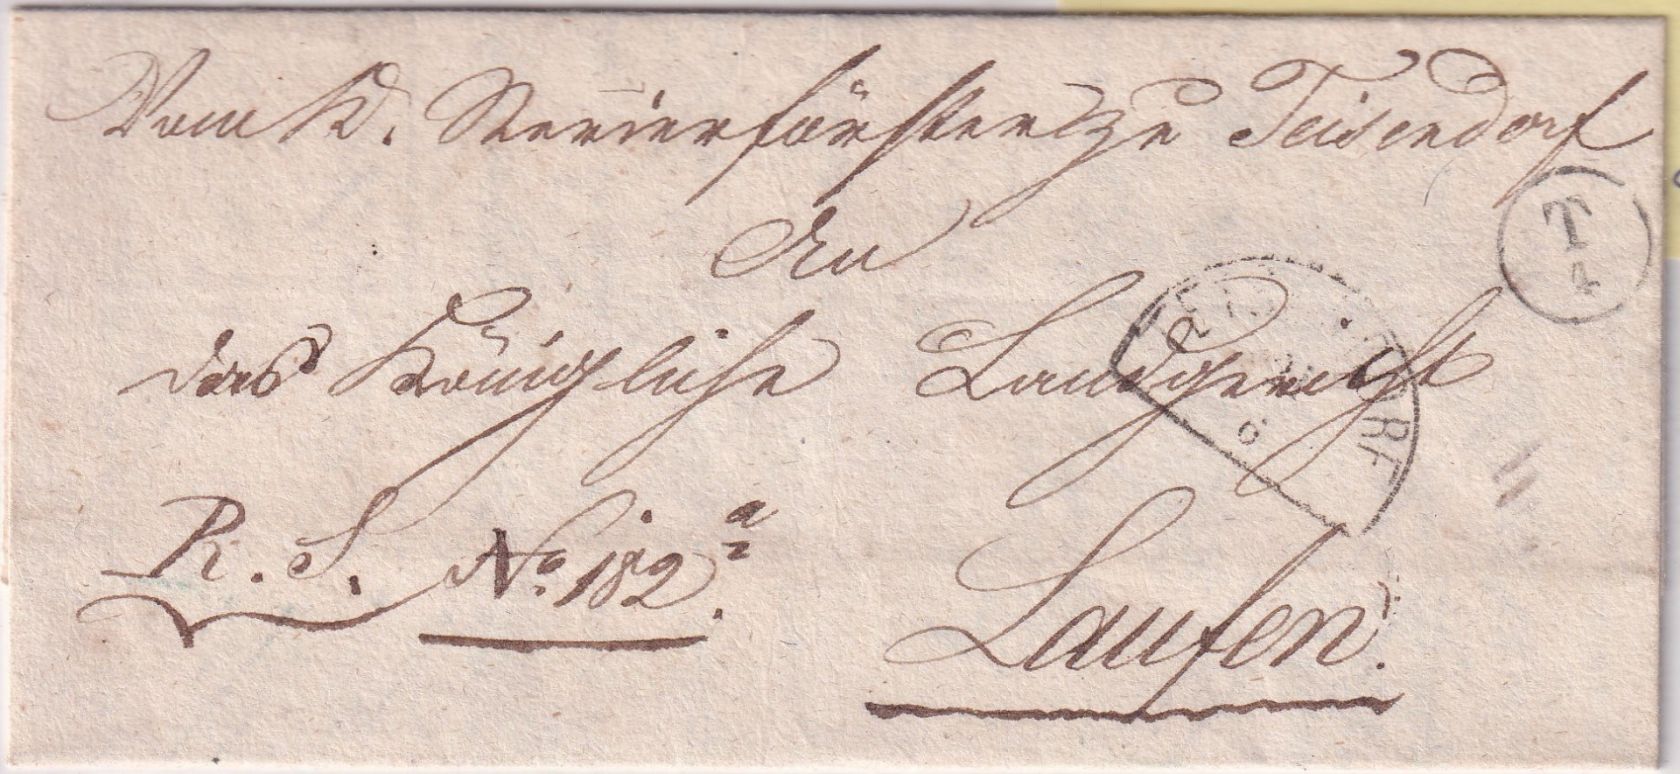 Vom K. Revierförster zu Teisendorf
T
4
An
das Königliche Landgericht
R. S. No. 182 a
Laufen.